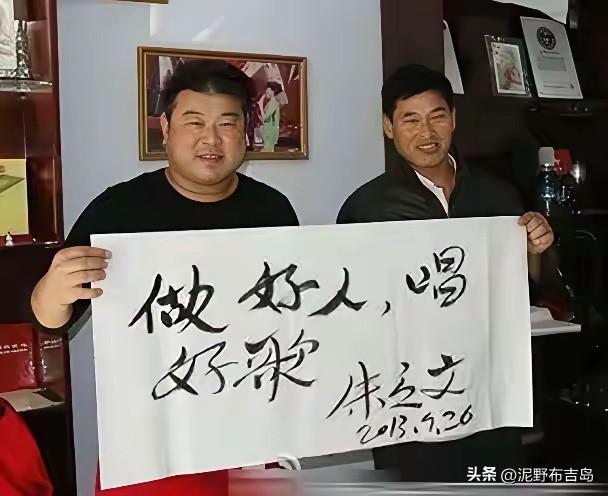 做好人,唱
好歌
朱之文
2013.9.26
头条 @泥野布吉岛